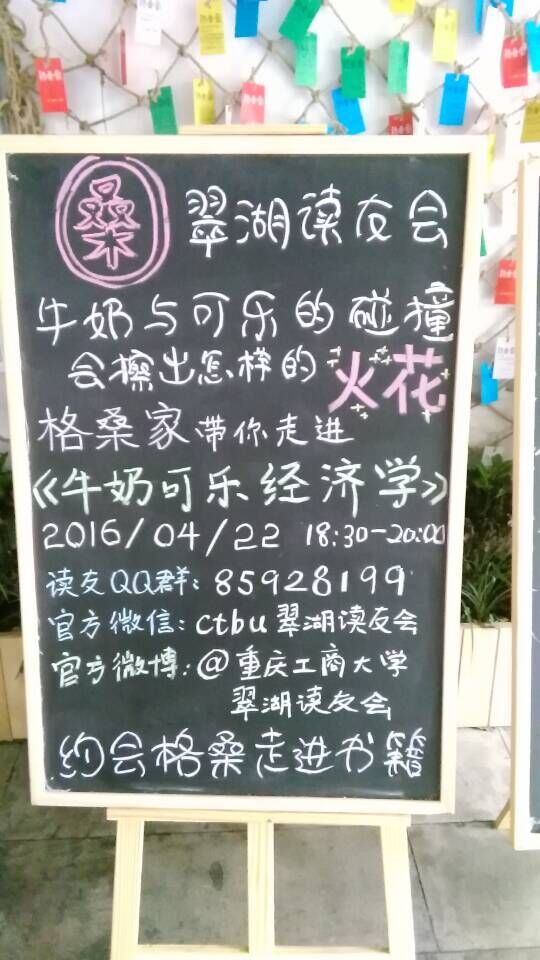 桑 翠湖读友会
牛奶与可乐的碰撞
会擦出怎样的火花
格桑家带你走进
《牛奶可乐经济学》
2016/04/22 18:30-20:00
读友QQ群：85928199
官方微信：ctbu翠湖读友会
官方微博：@重庆工商大学
翠湖读友会
约会格桑走进书籍